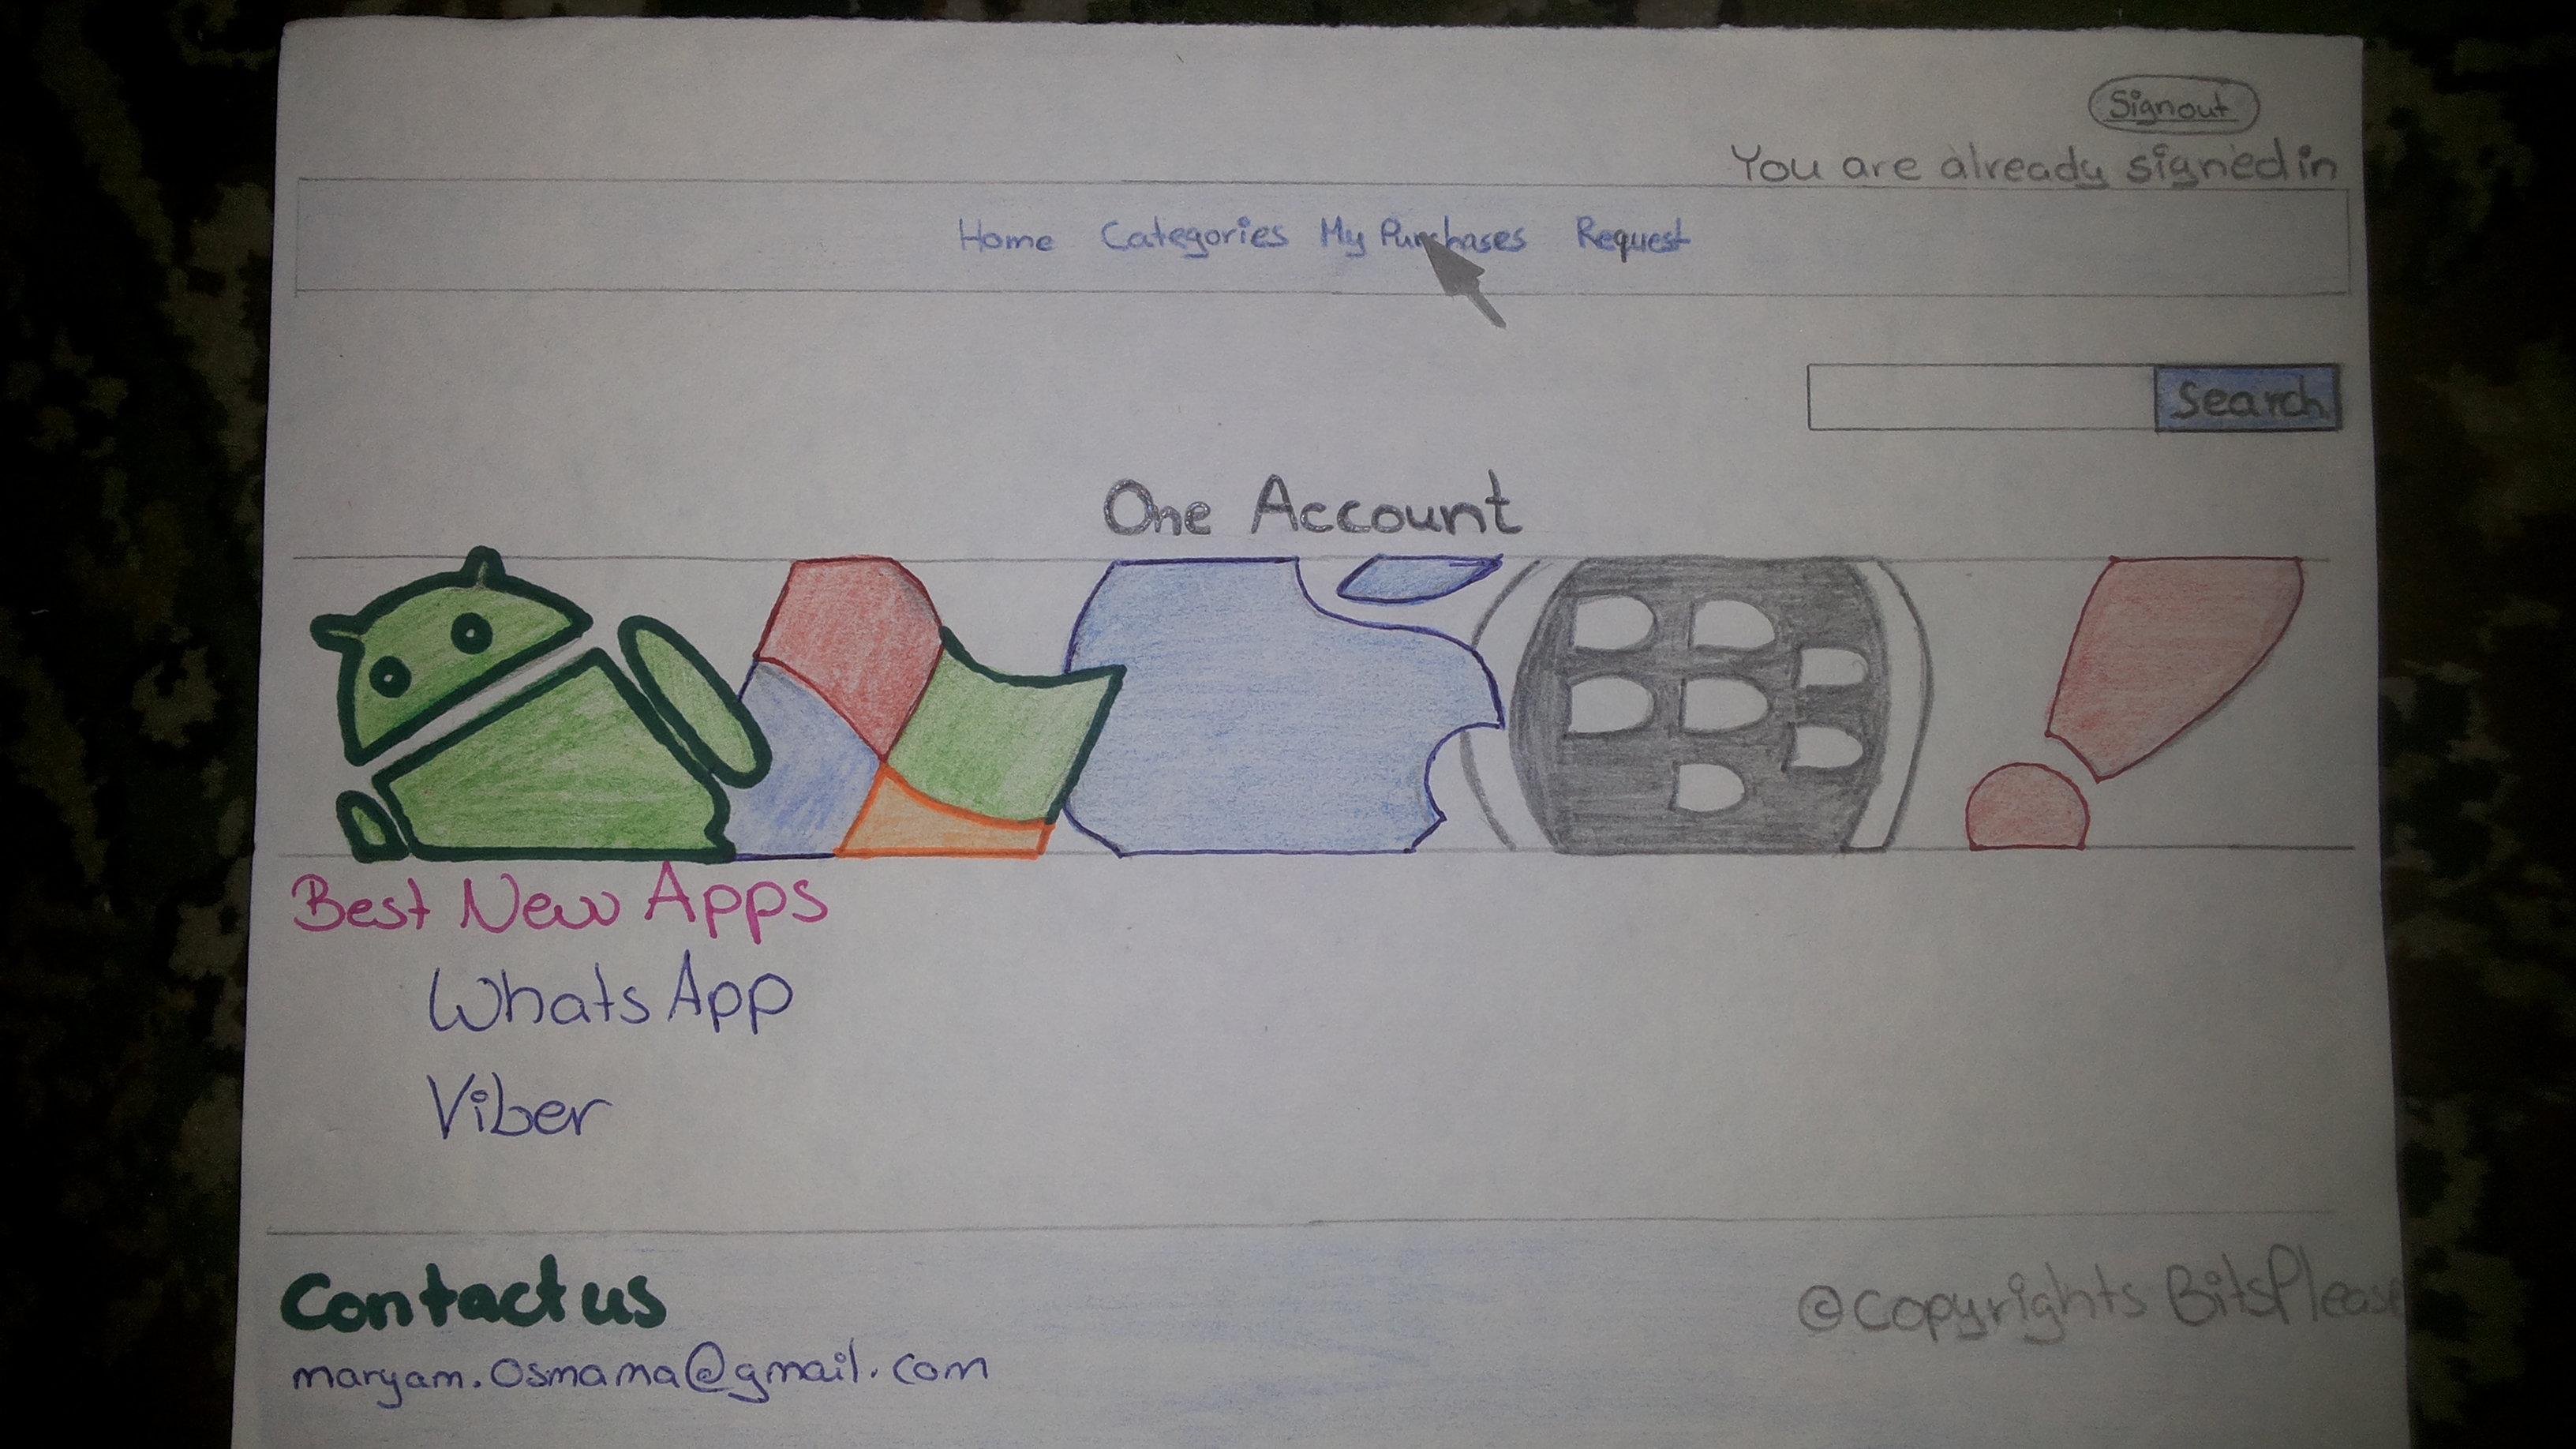 Signout
You are already signed in
Home Categories My Purchases Request
Search
One Account
Best New Apps
WhatsApp
Viber
Contact us
maryam.osmama@gmail.com
@copyrights BitsPlease